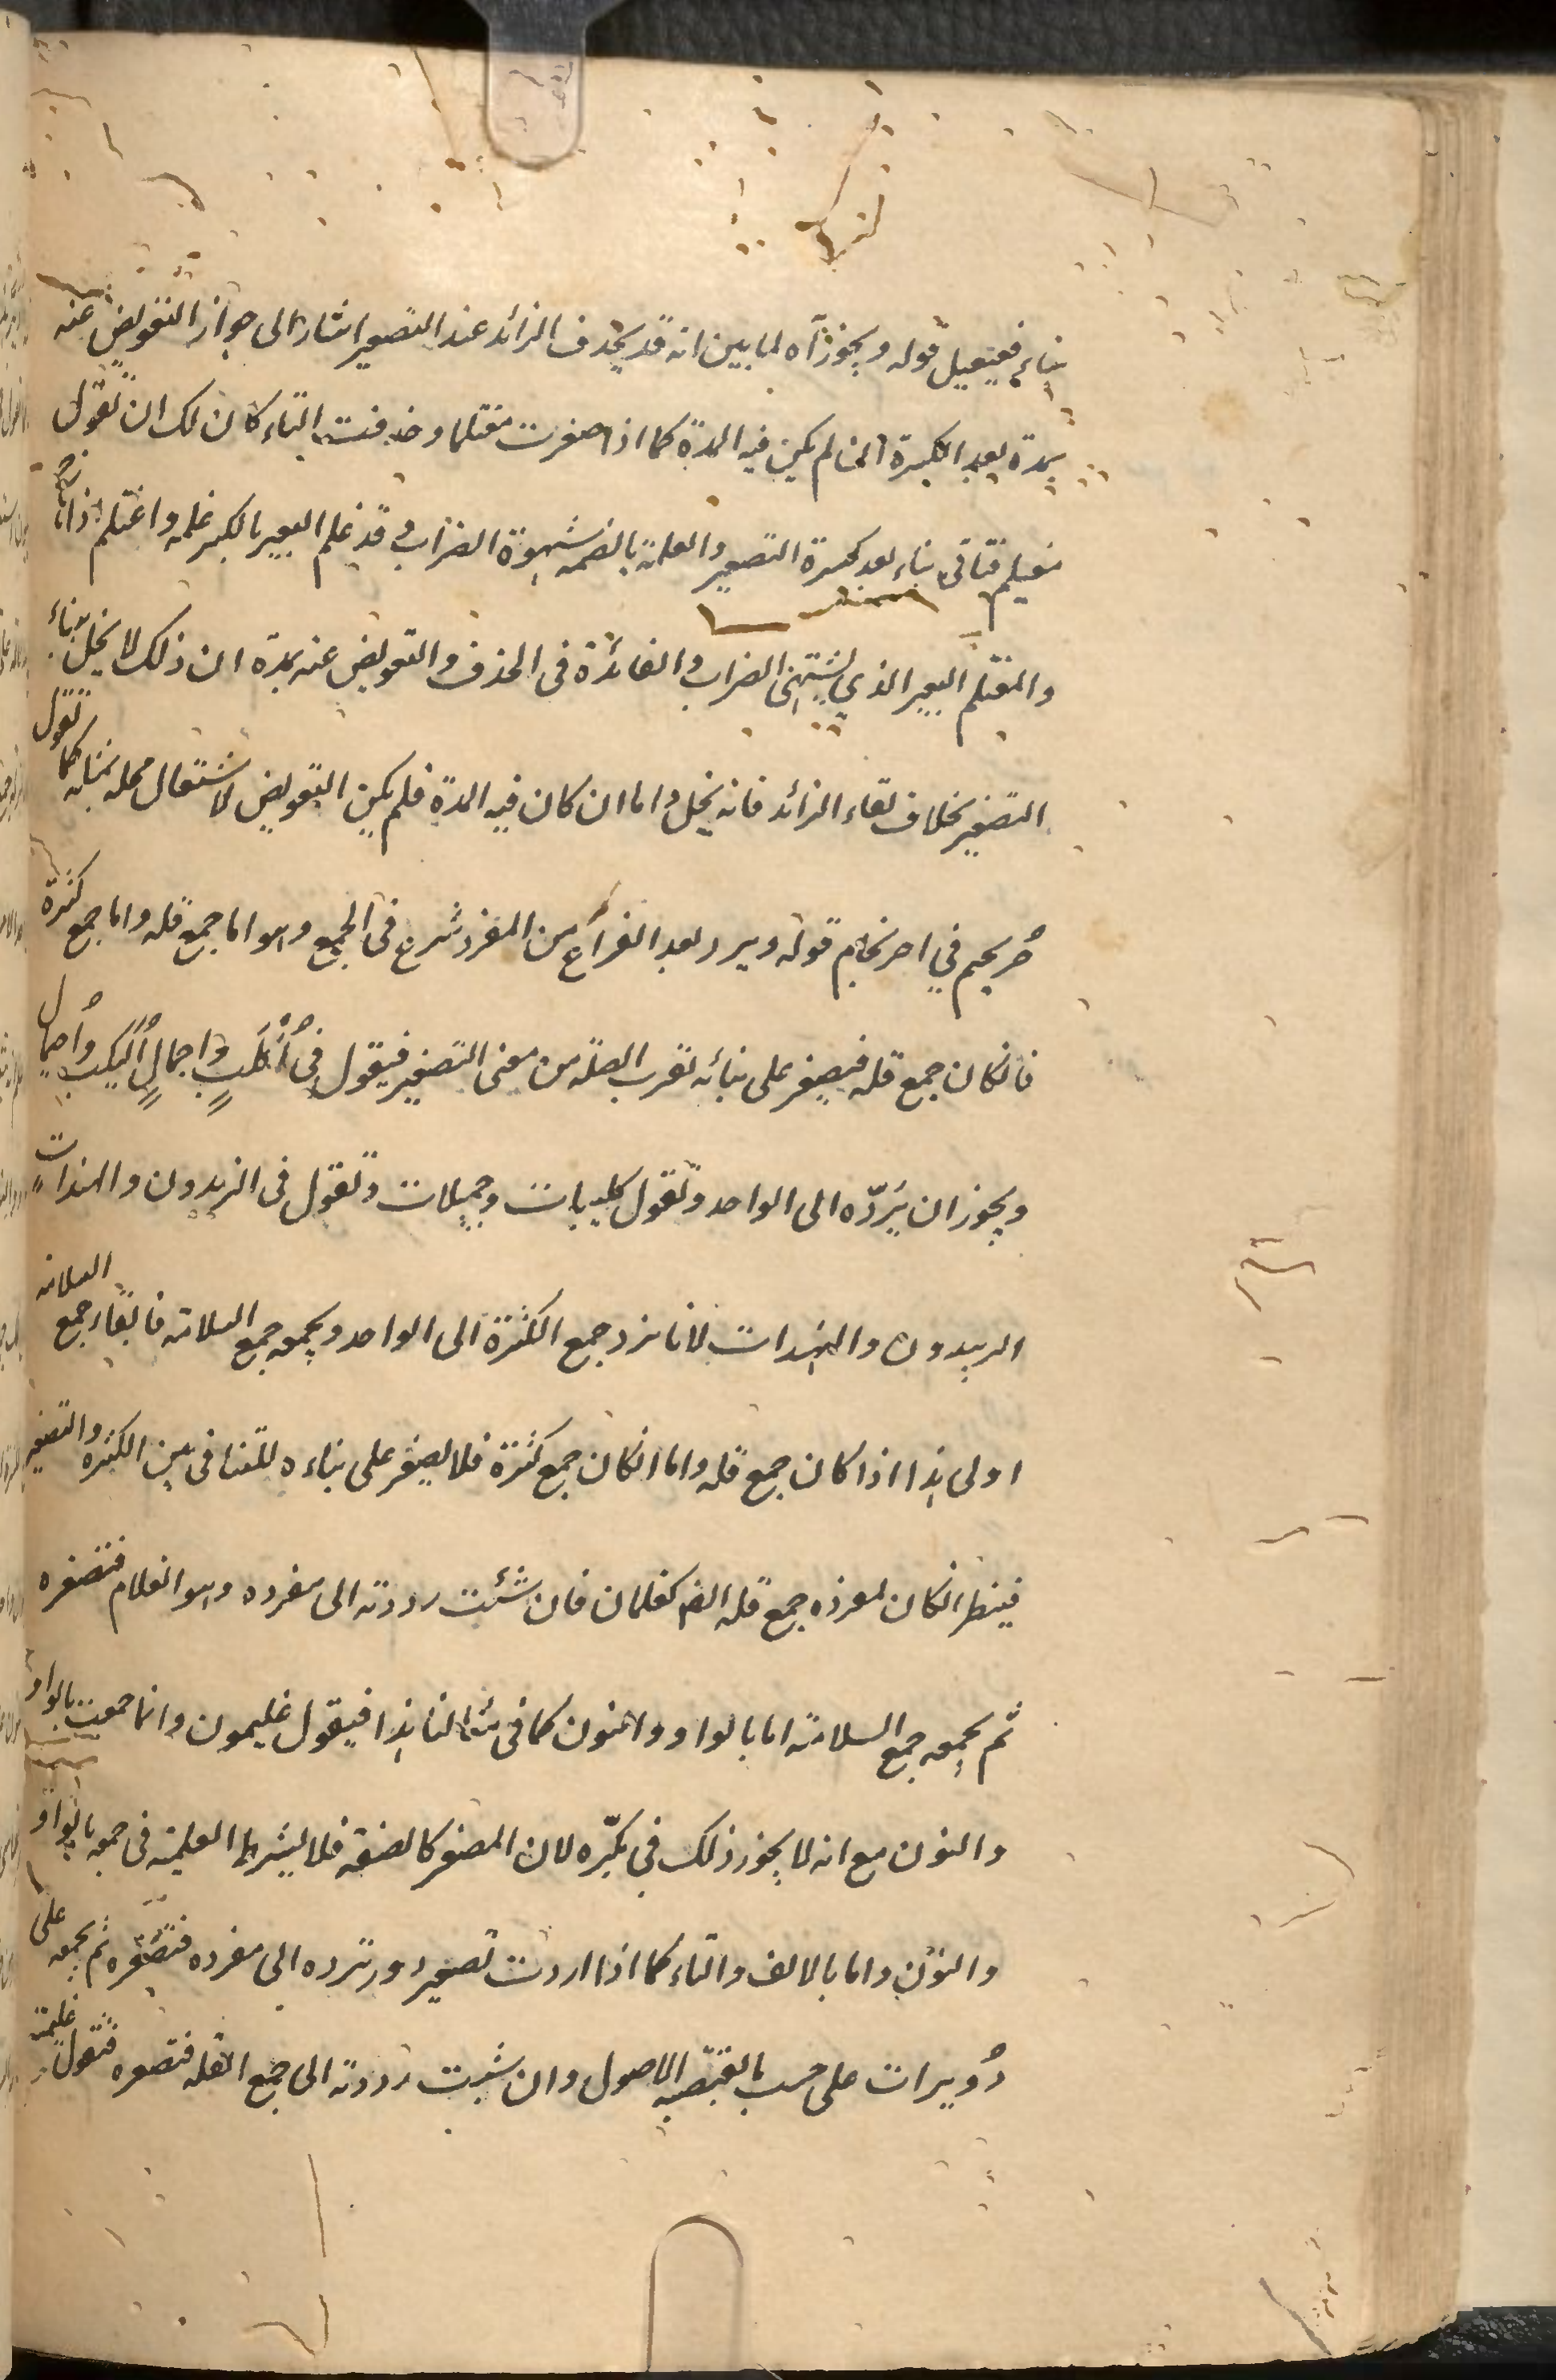 بناء فعيعيل قوله ويجوز آه لما بين انه قد يحذف الزائد عند التصغير اشار الى جواز التعويض عنه
بمدة بعد الكسرة ان لم يكن فيه المدة كما اذا صغرت مغتلما وحذفت التاء كان لك ان تقول
مغيليم فتاتى بياء بعد كسرة التصغير والغلمة بالضمة شهوة الضراب وقد غلم البعير بالكسر غلمه واغتلم اذا هاج
والمغتلم البعير الذي يشتهى الضراب والفائدة فى الحذف والتعويض عنه بمدة ان ذلك لا يخل ببناء
التصغير بخلاف بقاء الزائد فانه يخل واما ان كان فيه المدة فلم يكن التعويض لاشتغال محله بمثله كما تقول
حُريجيم في احرنجام قوله ويرد بعد الفراغ من المفرد شرع فى الجمع وهو اما جمع قله واما جمع كثرة
فانكان جمع قله فيصغر على بنائه لقرب القلة من معنى التصغير فيقول فى أكلُبٍ واجمالٍ أُكيلب وأُجيمال
ويجوز ان يَردّه الى الواحد وتقول كليبات وجميلات وتقول فى الزيدون والهندات
الزييدون والهنيدات لانا نرد جمع الكثرة الى الواحد ويجمع جمع السلامة فابقاء جمع السلامة
اولى هذا اذا كان جمع قله واما انكان جمع كثرة فلا يصغر على بناءه للتنافى بين الكثرة والتصغير
فينظر انكان لمفرده جمع قله ايضا كغلمان فان شئت رددته الى مفرده وهو الغلام فتصغره
ثم يجمع جمع السلامة اما بالواو والنون كما فى مثالنا هذا فيقول غليمون وانما جمعت بالواو
والنون مع انه لا يجوز ذلك في مكبّره لان المصغر كالصفة فلا يشترط العلمية فى جمعه بالواو
والنون واما بالالف والتاء كما اذا اردت تصغير دور ترده الى مفرده فتصغره ثم يجمعه على
دُويرات على حسب ما يقتضيه الاصول وان شئت رددته الى جمع القله فتصغره فتقول غليمة